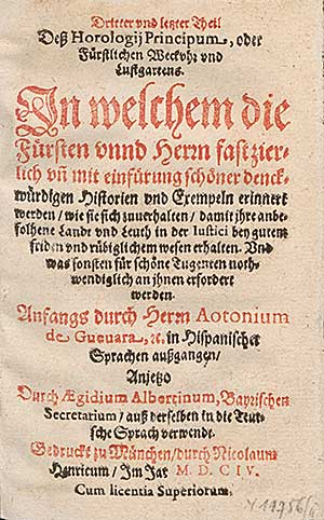 Dritter vnd letzter Theil
Deß Horologij Principum, oder
Fürstlichen Weckvhr vnd
Lustgartens.
In welchem die
Fürsten vnnd Herrn fast zier-
lich vñ mit einfürung schöner denck-
würdigen Historien vnd Exempeln erinnert
werden / wie sie sich zuuerhalten / damit ihre anbe-
folhene Landt vnd Leuth in der Iustici bey gutem
friden vnd rübiglichem wesen erhalten. Vnd
was sonsten für schöne Tugenten noth-
wendiglich an jhnen erfordert
werden.
Anfangs durch Herrn Aotonium
de Gueuara, ꝛc. in Hispanischer
Sprachen außgangen /
Anjetzo
Durch Ægidium Albertinum, Bayrischen
Secretarium / auß derselben in die Teut-
sche Sprach verwendt.
Gedruckt zu München / durch Nicolaum
Henricum / Im Jar M. D. CIV.
Cum licentia Superiorum.